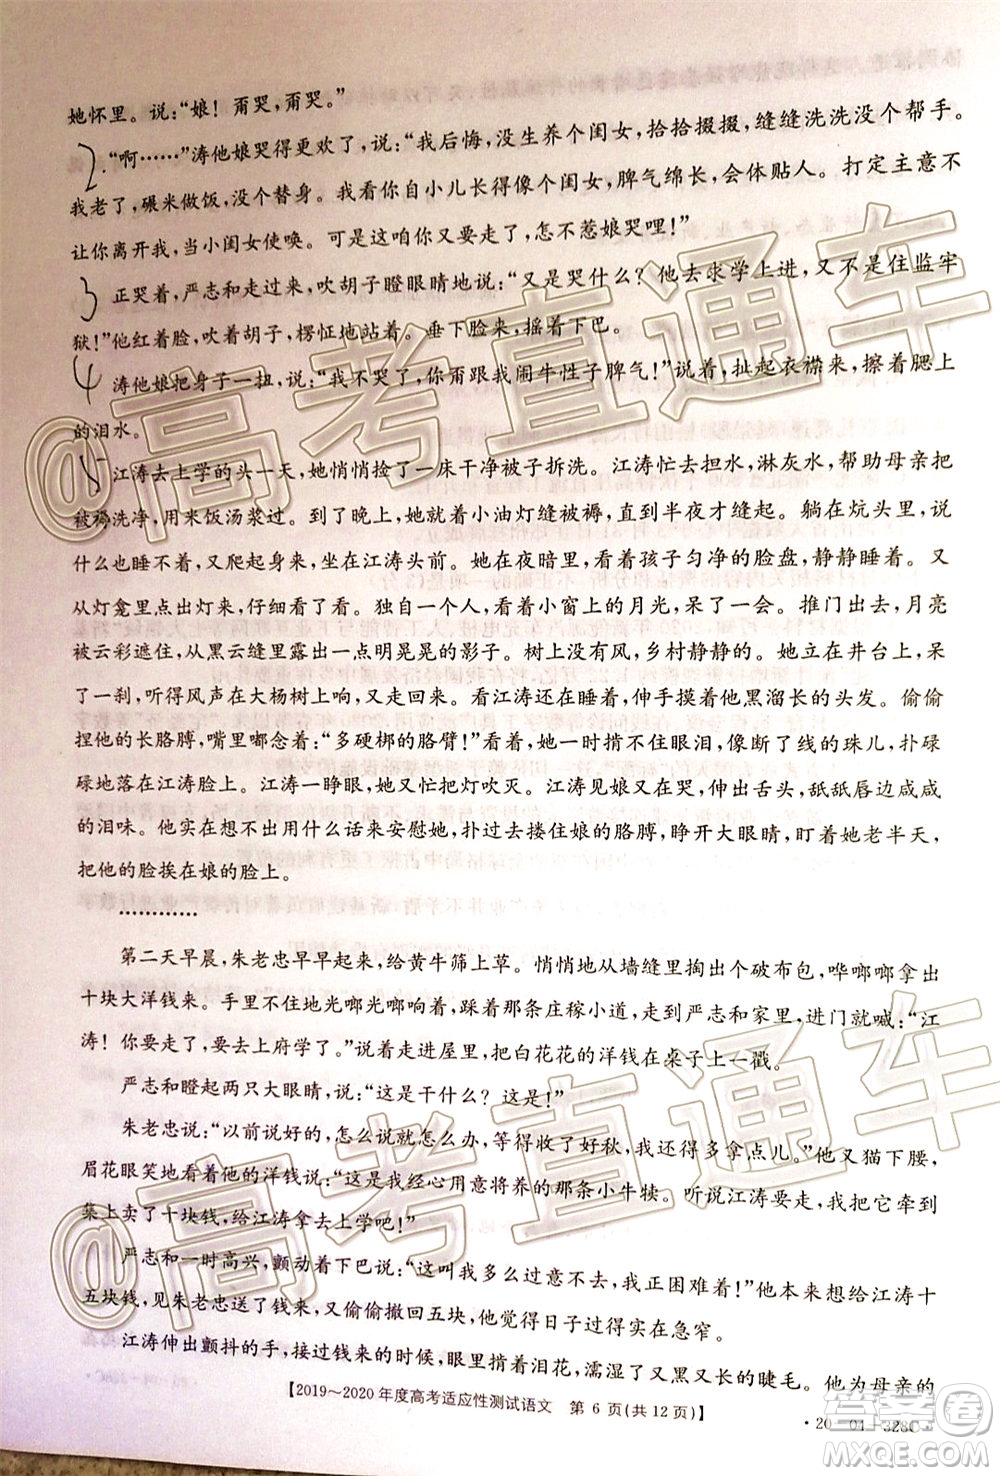 她怀里。说:“娘!甭哭,甭哭。”
2.“啊……”涛他娘哭得更欢了,说:“我后悔,没生养个闺女,拾拾掇掇,缝缝洗洗没个帮手。
我老了,碾米做饭,没个替身。我看你自小儿长得像个闺女,脾气绵长,会体贴人。打定主意不
让你离开我,当小闺女使唤。可是这咱们又要走了,怎不惹娘哭哩!”
3 正哭着,严志和走过来,吹胡子瞪眼睛地说:“又是哭什么?他去求学上进,又不是住监牢
狱!”他红着脸,吹着胡子,楞怔地站着。垂下脸来,摇着下巴。
4 涛他娘把身子一扭,说:“我不哭了,你甭跟我闹牛性子脾气!”说着,扯起衣襟来,擦着腮上
的泪水。
5 江涛去上学的头一天,她悄悄捡了一床干净被子拆洗。江涛忙去担水,淋灰水,帮助母亲把
被褥洗净,用米饭汤浆过。到了晚上,她就着小油灯缝被褥,直到半夜才缝起。躺在炕头上,
什么也睡不着,又爬起身来,坐在江涛头前。她在夜暗里,看着孩子匀净的脸盘,静静睡着。又
从灯龛里点出灯来,仔细看了看。独自一个人,看着小窗上的月光,呆了一会。推门出来,月亮
被云彩遮住,从黑云缝里露出一面明晃晃的影子。树上没有风,乡村静静的。她立在井台上,呆
了一刹,听得风声在大杨树上响,又走回来。看江涛还在睡着,伸手摸着他黑溜长的头发。偷偷
捏他的长胳膊,嘴里嘟念着:“多硬梆的胳臂!”看着,她一时揩不住眼泪,像断了线的珠儿,扑碌
碌地落在江涛脸上。江涛一睁眼,她又忙把灯吹灭。江涛见娘又在哭他,伸出舌头,舐舐唇边咸咸
的泪味。他实在想不出用什么话来安慰她,扑过去搂住娘的胳膊,睁开大眼睛,盯着她老半天,
把他的脸挨在娘的脸上。
…………
第二天早晨,朱老忠早早起来,给黄牛筛上草。悄悄的从墙缝里掏出个破布包,哗啷啷拿出
十块大洋钱来。手里不住地光啷光啷响着,踩着那条庄稼小道,走到严志和家里,进门就喊:“江
涛!你要走了,要去上府学了。”说着走进屋里,把白花花的洋钱在桌子上一戳。
严志和瞪起两只大眼睛,说:“这是干什么?这是!”
朱老忠说:“以前说好的,怎么说就怎么办,等得收了好秋,我还得多拿点儿。”他又猫下腰,
眉花眼笑地看着他的洋钱说:“这是我经心用意将养的那条小牛犊。听说江涛要走,我把它牵到
集上卖了十块钱,给江涛拿去上学吧!”
严志和一时高兴,颤动着下巴说:“这叫我多么过意不去,我正困难着!”他本来想给江涛十
五块钱,见朱老忠送了钱来,又偷偷撤回五块,他觉得日子过得实在急窄。
江涛伸出颤抖的手,接过钱来的时候,眼里揹着泪花,濡湿了又黑又长的睫毛。他为母亲的
【2019~2020年度高考适应性测试语文 第6页(共12页)】
·20-04-328C·
@高考直通车
@高考直通车
答案圈
MXQE.COM